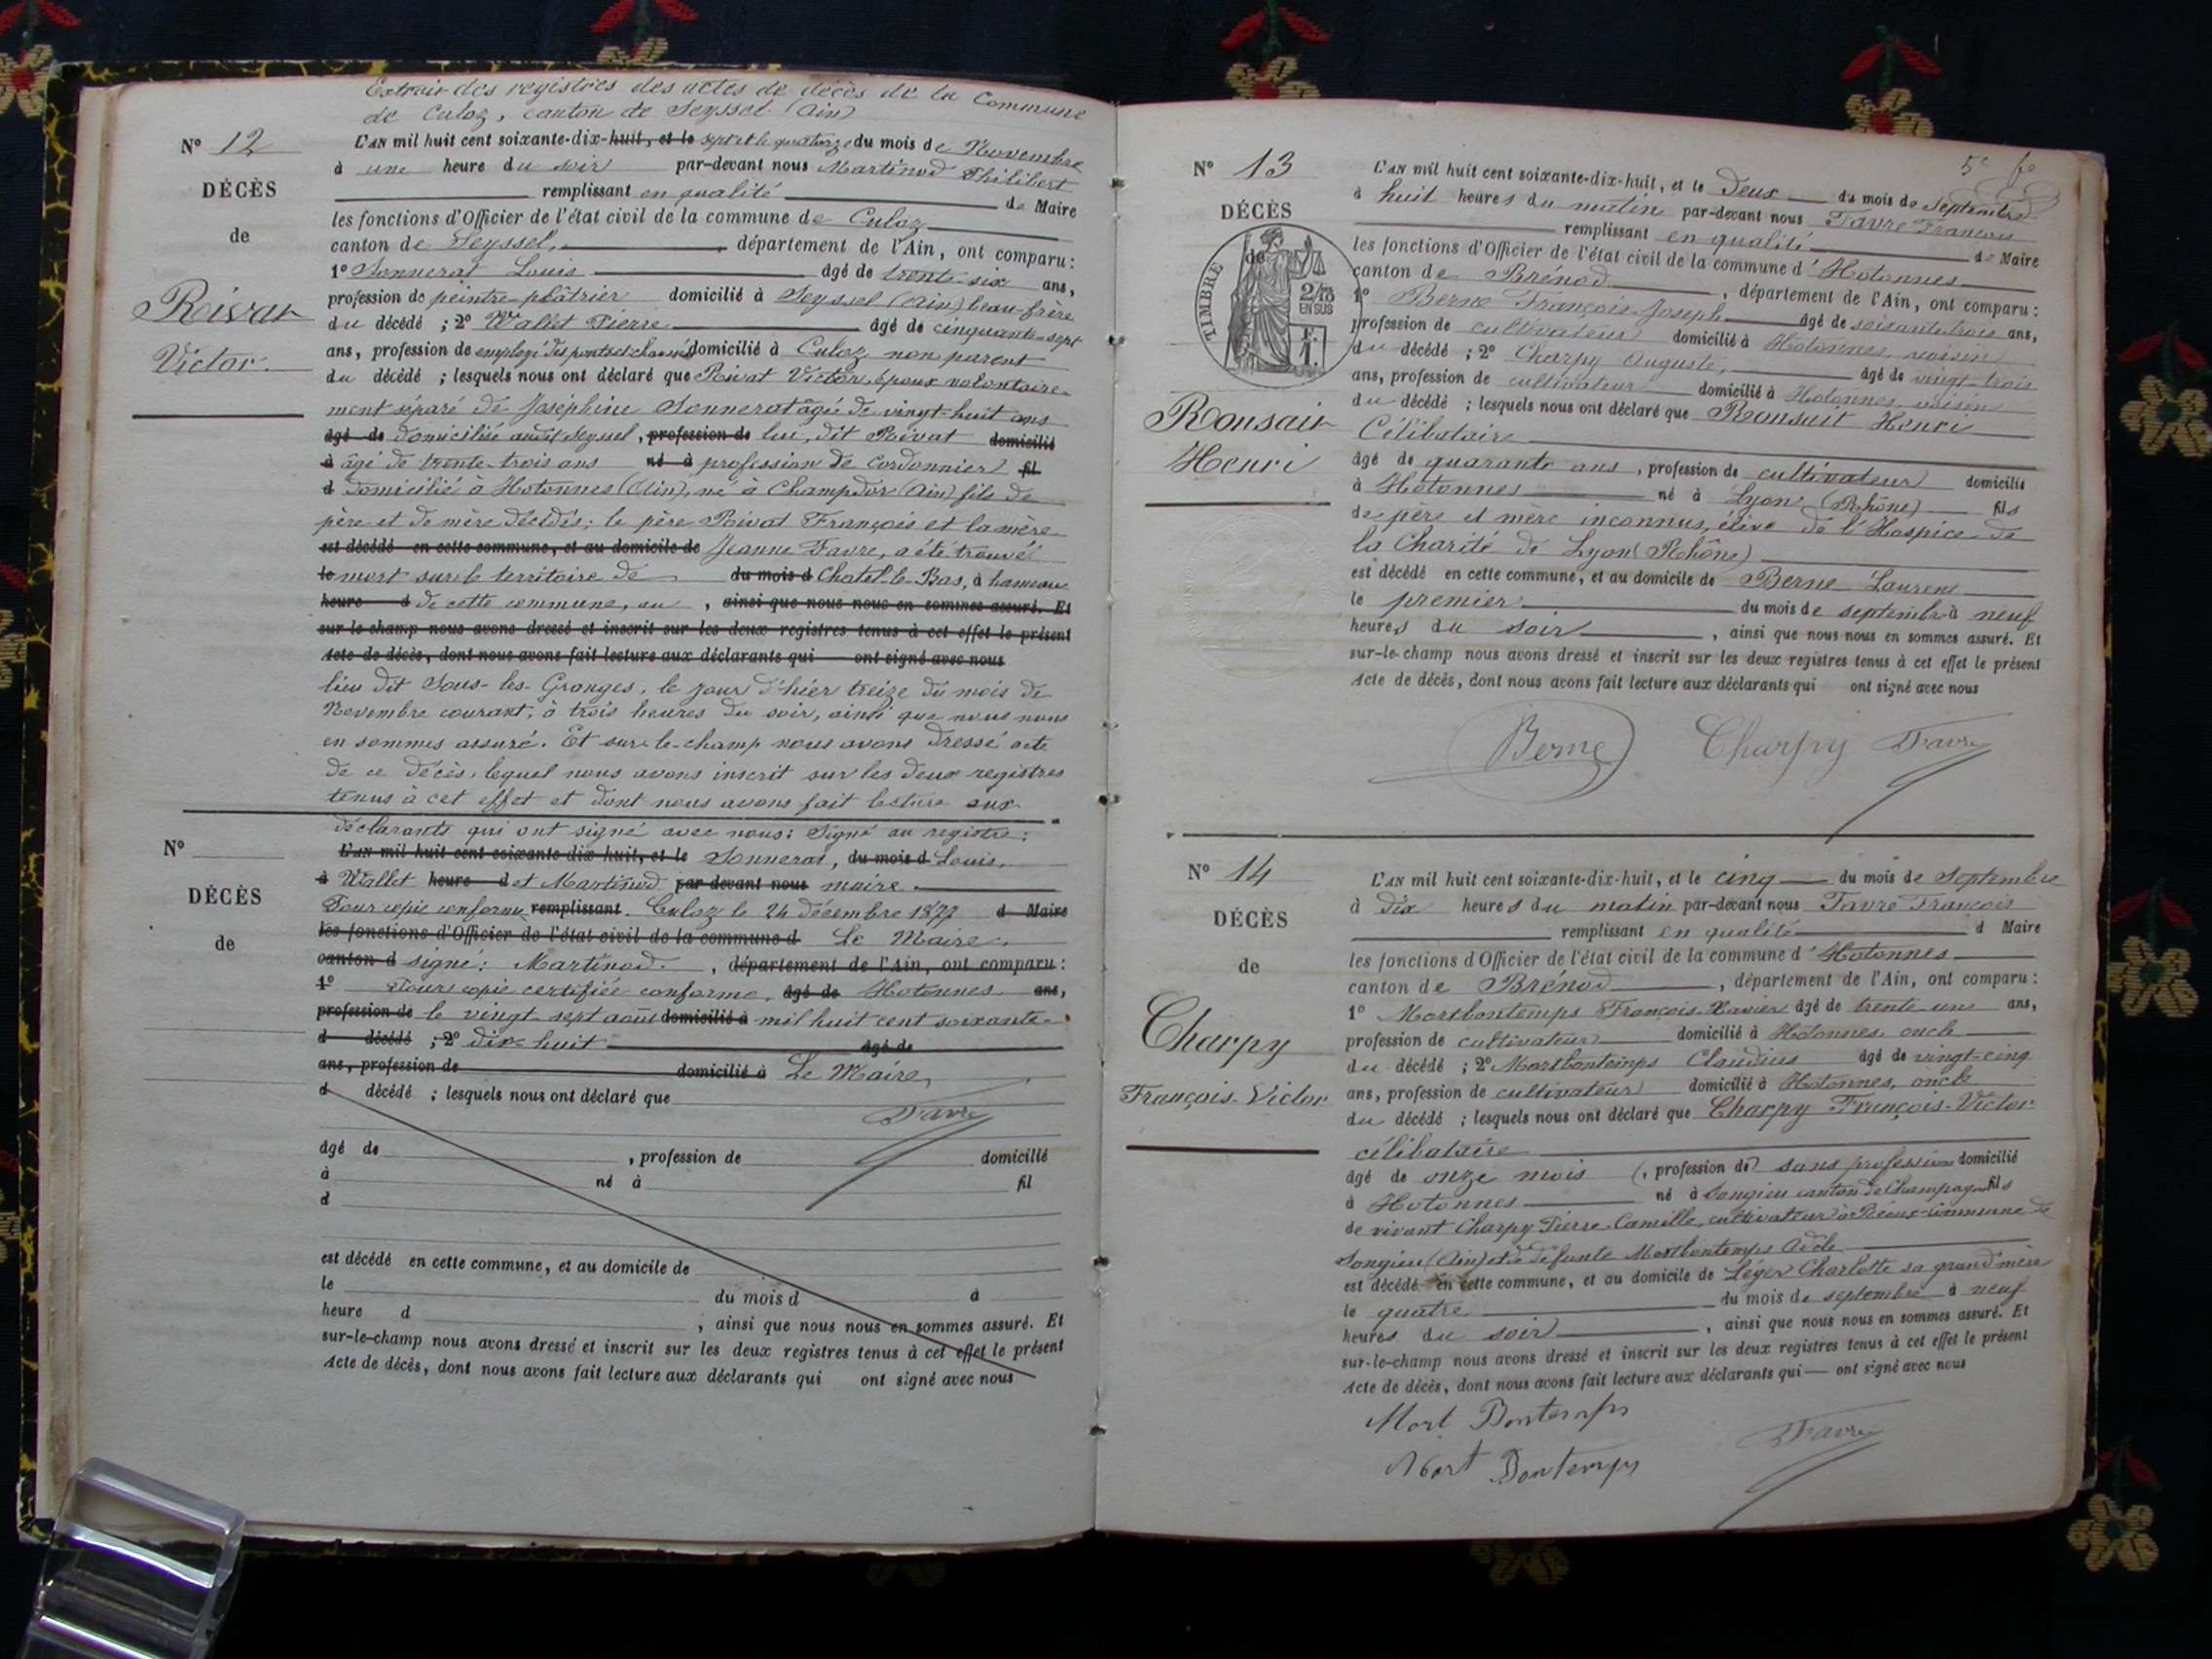 Extrait des registres des actes de décès de la Commune
de Culoz, canton de Seyssel (Ain)
N° 12
DÉCÈS
de
Rivat
Victor.
L'AN mil huit cent soixante-dix-huit, et le sept et le quatorze du mois de Novembre
à une heure du soir par-devant nous Martinod Philibert
remplissant en qualité de Maire
les fonctions d'Officier de l'état civil de la commune de Culoz
canton de Seyssel, département de l'Ain, ont comparu:
1° Sonnerat Louis âgé de trente-six ans,
profession de peintre-plâtrier domicilié à Seyssel (Ain) beau-frère
du décédé ; 2° Wallet Pierre âgé de cinquante-sept
ans, profession de employé des ponts et chaussées domicilié à Culoz non parent
du décédé ; lesquels nous ont déclaré que Rivat Victor, époux volontaire-
ment séparé de Joséphine Sonnerat âgée de vingt-huit ans
âgé de domiciliée audit Seyssel, profession de lui, dit Rivat domicilié
à âgé de trente-trois ans né à profession de cordonnier fil
d domicilié à Hotonnes (Ain), né à Champdor (Ain) fils de
père et de mère décédés; le père Rivat François et la mère
est décédé en cette commune, et au domicile de Jeanne Favre, a été trouvé
le mort sur le territoire de du mois d Chatel-le-Bas, à hameau
heure d de cette commune, au , ainsi que nous nous en sommes assuré. Et
sur-le-champ nous avons dressé et inscrit sur les deux registres tenus à cet effet le présent
Acte de décès, dont nous avons fait lecture aux déclarants qui ont signé avec nous
lieu dit Sous-les-Granges, le jour d'hier treize du mois de
Novembre courant, à trois heures du soir, ainsi que nous nous
en sommes assuré. Et sur-le-champ nous avons dressé acte
de ce décès, lequel nous avons inscrit sur les deux registres
tenus à cet effet et dont nous avons fait lecture aux
déclarants qui ont signé avec nous: Signé au registre:
N°
DÉCÈS
de
L'AN mil huit cent soixante-dix-huit, et le Sonnerat, du mois d Louis,
à Wallet heure d et Martinod par-devant nous maire.
Pour copie conforme remplissant. Culoz le 24 décembre 1877 d Maire
les fonctions d'Officier de l'état civil de la commune d Le Maire,
canton d signé: Martinod. , département de l'Ain, ont comparu:
1° Pour copie certifiée conforme, âgé de Hotonnes ans,
profession de le vingt-sept août domicilié à mil huit cent soixante-
d décédé ; 2° dix-huit âgé de
ans, profession de domicilié à Le Maire,
d décédé ; lesquels nous ont déclaré que
Favre
âgé de , profession de domicilié
à né à fil
d
est décédé en cette commune, et au domicile de
le du mois d à
heure d , ainsi que nous nous en sommes assuré. Et
sur-le-champ nous avons dressé et inscrit sur les deux registres tenus à cet effet le présent
Acte de décès, dont nous avons fait lecture aux déclarants qui ont signé avec nous
5e
N° 13
DÉCÈS
de
TIMBRE
2/10
EN SUS
F.
1.
Ronsait
Henri
L'AN mil huit cent soixante-dix-huit, et le deux du mois de Septembre
à huit heures du matin par-devant nous Favre François
remplissant en qualité de Maire
les fonctions d'Officier de l'état civil de la commune d'Hotonnes
canton de Brénod, département de l'Ain, ont comparu:
1° Berne François-Joseph âgé de soixante-trois ans,
profession de cultivateur domicilié à Hotonnes, voisin
du décédé ; 2° Charpy Auguste, âgé de vingt-trois
ans, profession de cultivateur domicilié à Hotonnes, voisin
du décédé ; lesquels nous ont déclaré que Ronsait Henri
Célibataire
âgé de quarante ans, profession de cultivateur domicilié
à Hotonnes né à Lyon (Rhône) fils
de père et mère inconnus, élève de l'Hospice de
la Charité de Lyon (Rhône)
est décédé en cette commune, et au domicile de Berne Laurent
le premier du mois de septembre à neuf
heures du soir, ainsi que nous nous en sommes assuré. Et
sur-le-champ nous avons dressé et inscrit sur les deux registres tenus à cet effet le présent
Acte de décès, dont nous avons fait lecture aux déclarants qui ont signé avec nous
Berne Charpy Favre
N° 14
DÉCÈS
de
Charpy
François-Victor
L'AN mil huit cent soixante-dix-huit, et le cinq du mois de Septembre
à dix heures du matin par-devant nous Favre François
remplissant en qualité d Maire
les fonctions d'Officier de l'état civil de la commune d'Hotonnes
canton de Brénod, département de l'Ain, ont comparu:
1° Mortbontemps François-Xavier âgé de trente-un ans,
profession de cultivateur domicilié à Hotonnes, oncle
du décédé ; 2° Mortbontemps Claudius âgé de vingt-cinq
ans, profession de cultivateur domicilié à Hotonnes, oncle
du décédé ; lesquels nous ont déclaré que Charpy François-Victor
célibataire
âgé de onze mois (, profession de) sans profession domicilié
à Hotonnes né à Songieu canton de Champagne fils
de vivant Charpy Pierre-Camille, cultivateur à Commune de
Songieu (Ain) et de défunte Mortbontemps Adèle
est décédé en cette commune, et au domicile de Léger Charlotte sa grand'mère
le quatre du mois de septembre à neuf
heures du soir, ainsi que nous nous en sommes assuré. Et
sur-le-champ nous avons dressé et inscrit sur les deux registres tenus à cet effet le présent
Acte de décès, dont nous avons fait lecture aux déclarants qui ont signé avec nous
Mort Bontemps
Favre
Mort Bontemps